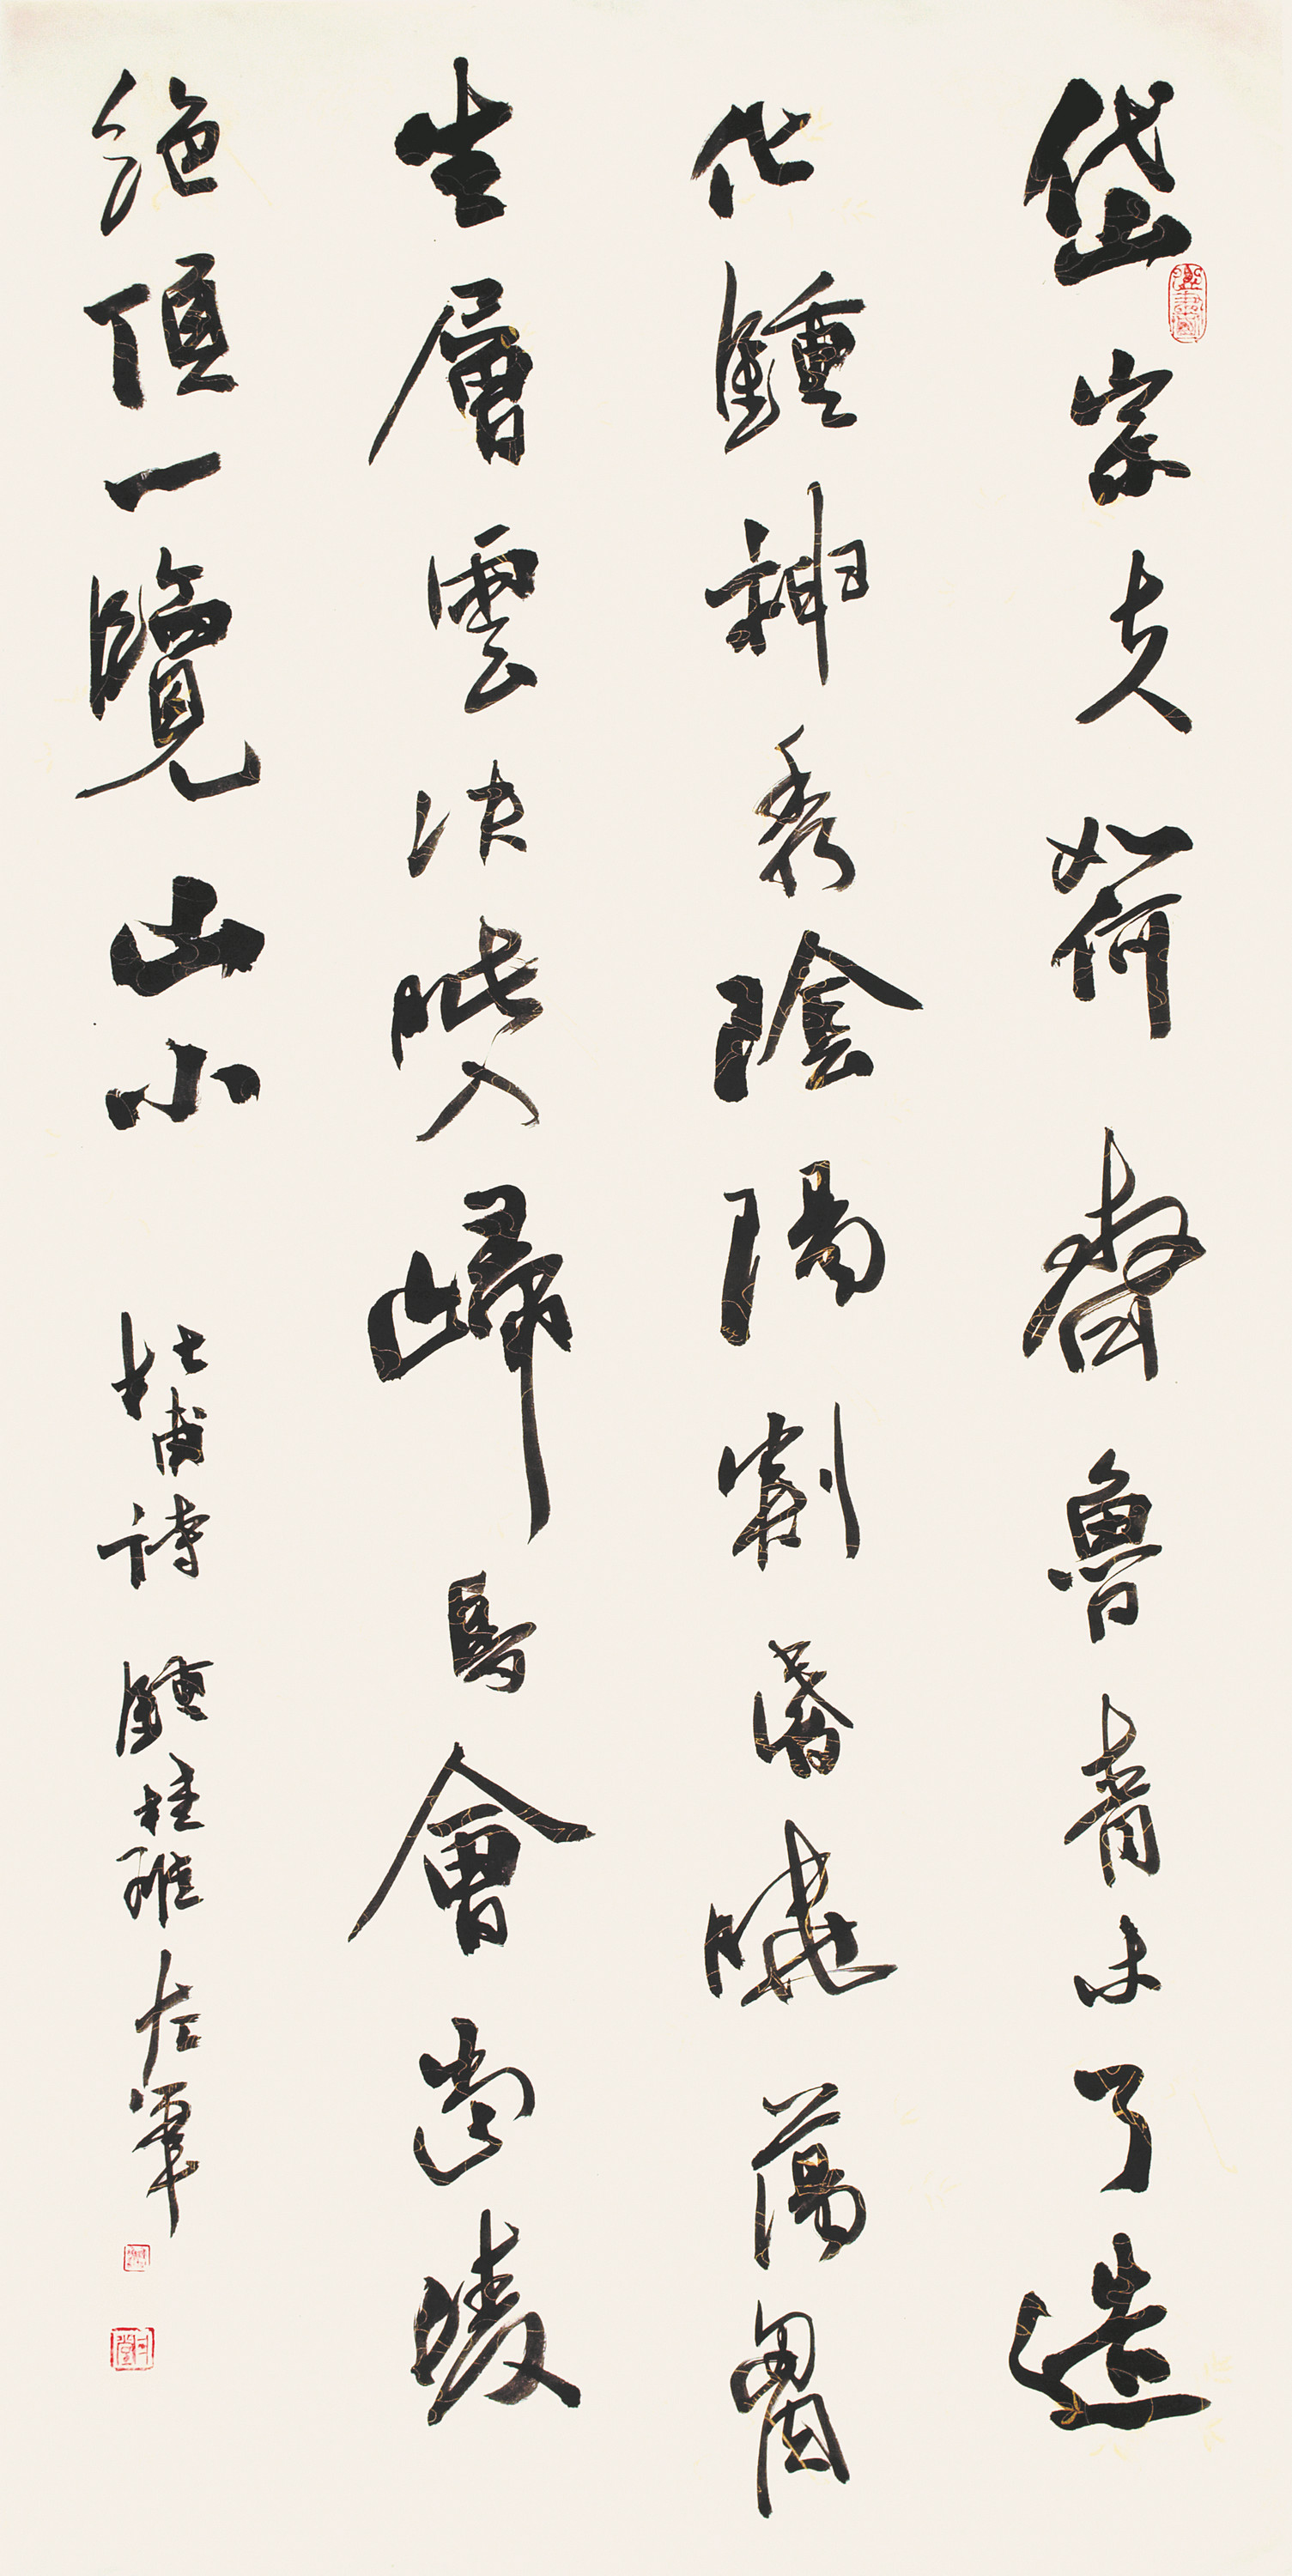 岱宗夫如何齊魯青未了造
化鍾神秀陰陽割昏曉蕩胷
生層雲决眦入歸鳥會當凌
絕頂一覽山小 杜甫詩 鍾桂